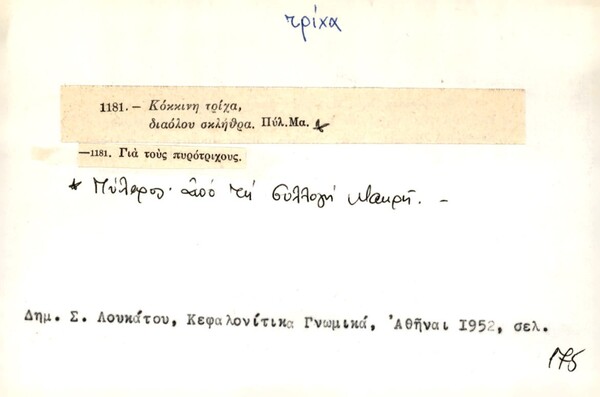 τρίχα
1181.— Κόκκινη τρίχα,
διαόλου σκλήθρα. Πύλ.Μα. *
—1181. Γιὰ τοὺς πυρότριχους.
* Πύλαρος. ἀπό τή συλλογή Μακρῆ. —
Δημ. Σ. Λουκάτου, Κεφαλονίτικα Γνωμικά, Ἀθῆναι 1952, σελ.
175